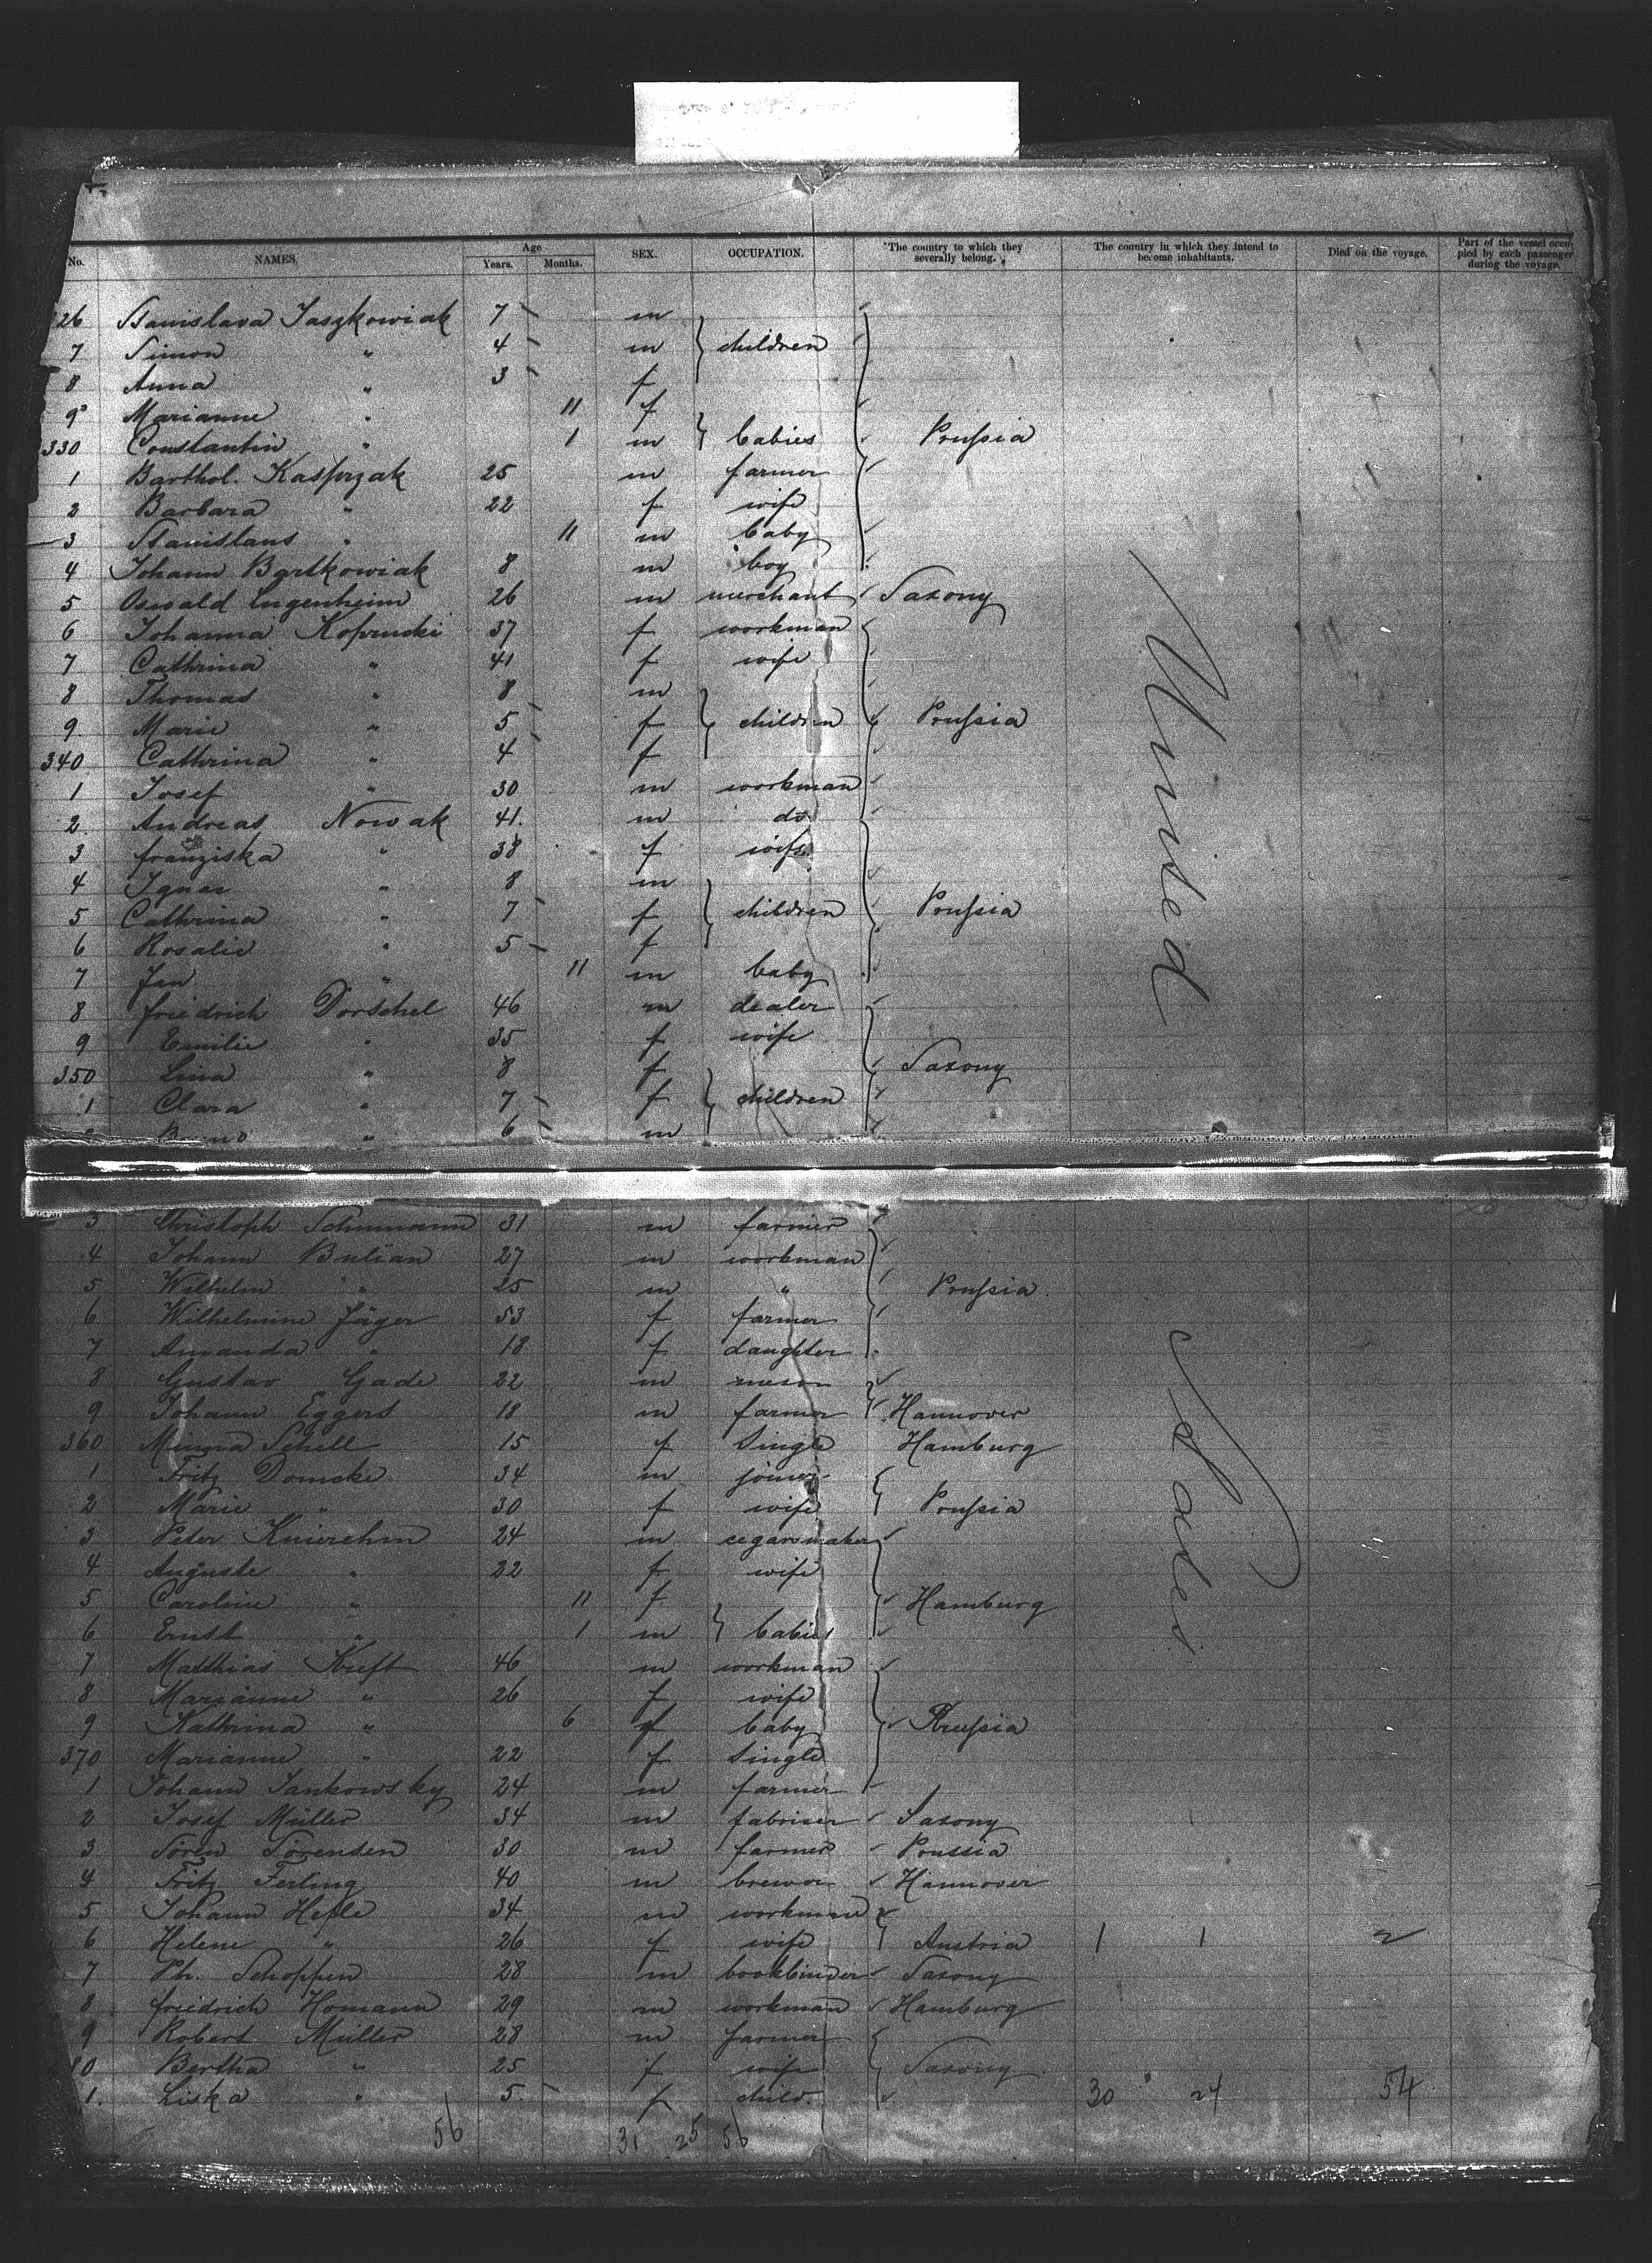 No. NAMES. Age Years. Months. SEX. OCCUPATION. *The country to which they severally belong. The country in which they intend to become inhabitants. Died on the voyage. Part of the vessel occupied by each passenger during the voyage.
26 Stanislava Jaszkowiak 7 m
7 Simon " 4 m children
8 Anna " 3 f
9 Marianne " 11 f
330 Constantin " 1 m babies Prussia
1 Barthol. Kasprzak 25 m farmer
2 Barbara " 22 f wife
3 Stanislaus " 11 m baby
4 Johann Bartkowiak 8 m boy
5 Oswald Lugenheim 26 m merchant Saxony
6 Johanna Koprucki 37 f workman
7 Cathrina " 41 f wife
8 Thomas " 8 m
9 Marie " 5 f children Prussia
340 Cathrina " 4 f
1 Josef " 30 m workman
2 Andreas Nowak 41 m do
3 franziska " 38 f wife
4 Ignas " 8 m
5 Cathrina " 7 f children Prussia
6 Rosalie " 5 f
7 Jan " 11 m baby
8 friedrich Dorschel 46 m dealer
9 Emilie " 35 f wife
350 Lina " 8 f Saxony
1 Clara " 7 f children
Bruno " 6 m
United
3 Christoph Schumann 31 m farmer
4 Johann Bulian 27 m workman
5 Wilhelm " 25 m " Prussia
6 Wilhelmine Jäger 53 f farmer
7 Amanda " 18 f daughter
8 Gustav Gade 22 m meson
9 Johann Eggers 18 m farmer Hannover
360 Minna Schell 15 f Single Hamburg
1 Fritz Domcke 34 m joiner
2 Marie " 30 f wife Prussia
3 Peter Knierehm 24 m cegarsmaker
4 Auguste " 22 f wife
5 Caroline " 11 f Hamburg
6 Ernst " 1 m babies
7 Matthias Kruft 46 m workman
8 Marianne " 26 f wife
9 Kathrina " 6 f baby Prussia
370 Marianne " 22 f Single
1 Johann Jankowsky 24 m farmer
2 Josef Müller 34 m fabriser Saxony
3 Sören Sörensen 30 m farmer Prussia
4 Fritz Ferling 40 m brewer Hannover
5 Johann Hefle 34 m workman
6 Helene " 26 f wife Austria 1 1 2
7 Ph. Schoppen 28 m bookbinder Saxony
8 friedrich Homann 29 m workman Hamburg
9 Robert Müller 28 m farmer
80 Bertha " 25 f wife Saxony
1. Liska " 5 f child. 30 24 54
56 31 25 56
States